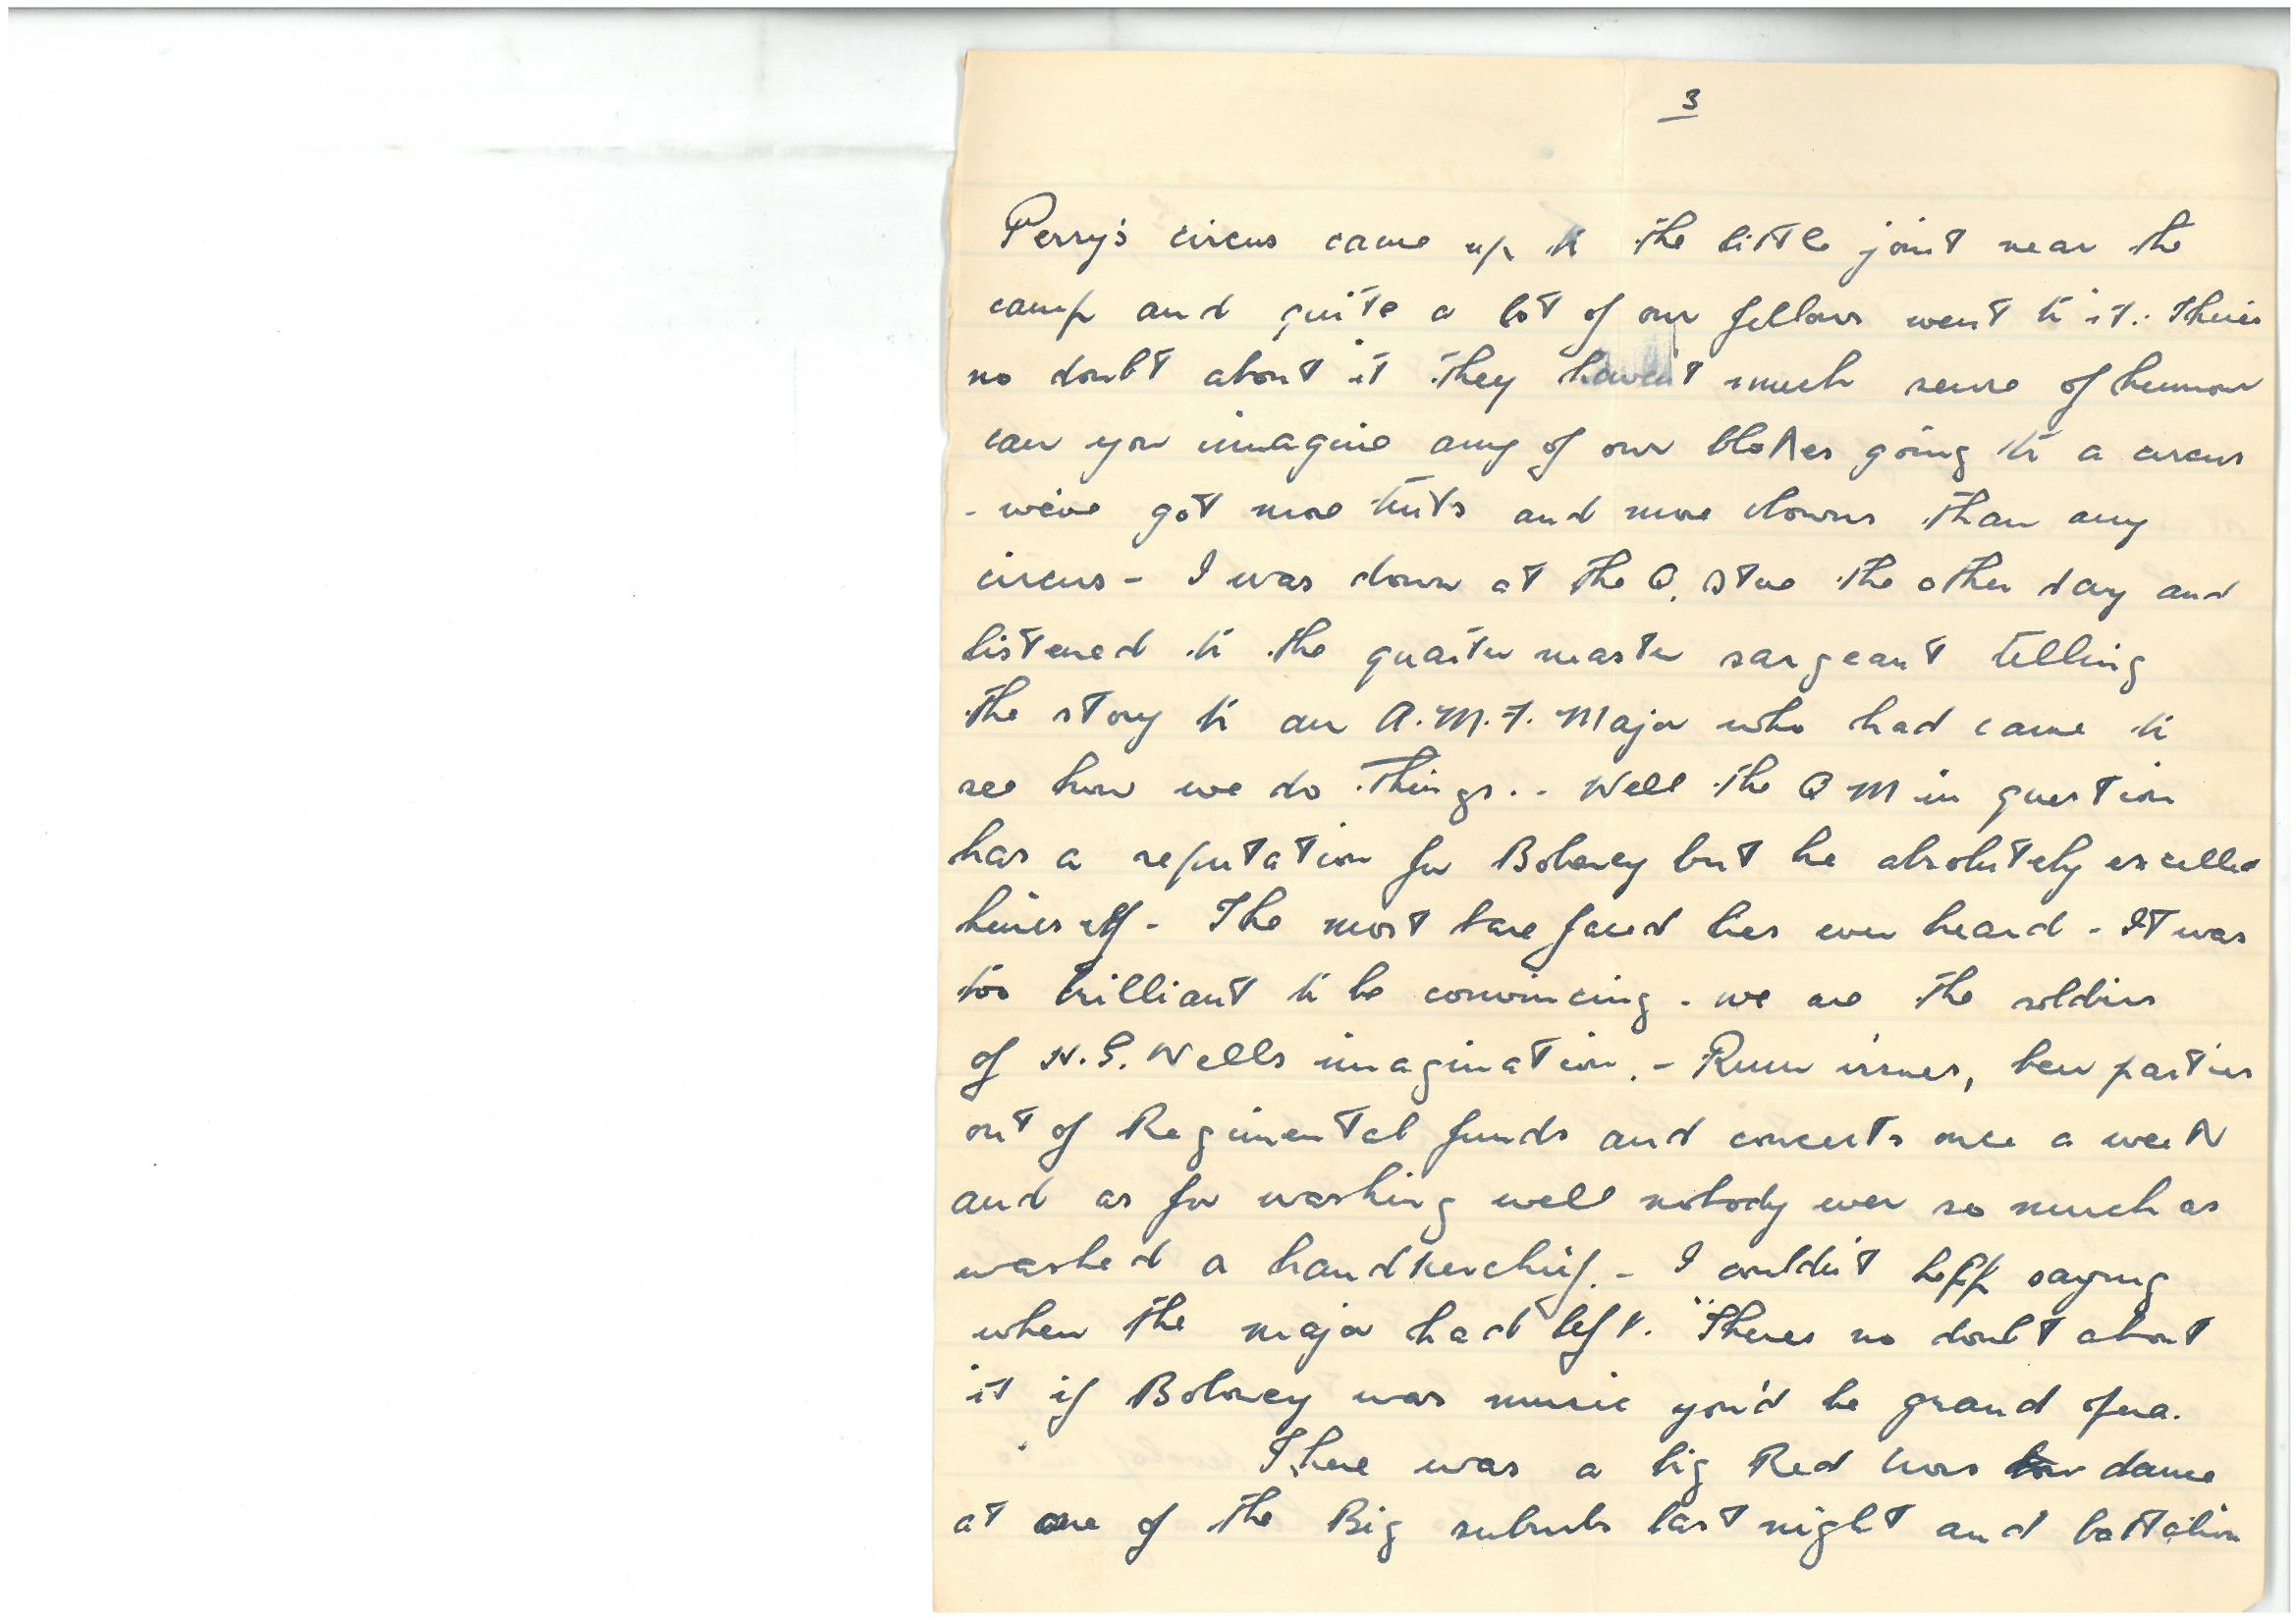 3
Perry's circus came up to the little joint near the
camp and quite a lot of our fellows went to it. Theres
no doubt about it they haven't much sense of humour
can you immagine any of our blokes going to a circus
- we've got more tents and more clowns than any
circus - I was down at the Q. store the other day and
listened to the quarter master sargeant telling
the story to an A.M.F. Major who had came to
see how we do things.. Well the Q M in question
has a reputation for Boloney but he absolutely excelled
himself - The most bare faced lies ever heard - It was
too brilliant to be convincing - we are the soldiers
of H.G. Wells imagination. - Rum issues, beer parties
out of Regimental funds and concerts once a week
and as for washing well nobody ever so much as
washed a handkerchief. - I couldn't help saying
when the major had left. "Theres no doubt about
it if Boloney was music you'd be grand opera.
There was a big Red Cross dance
at one of the Big suburbs last night and battalion